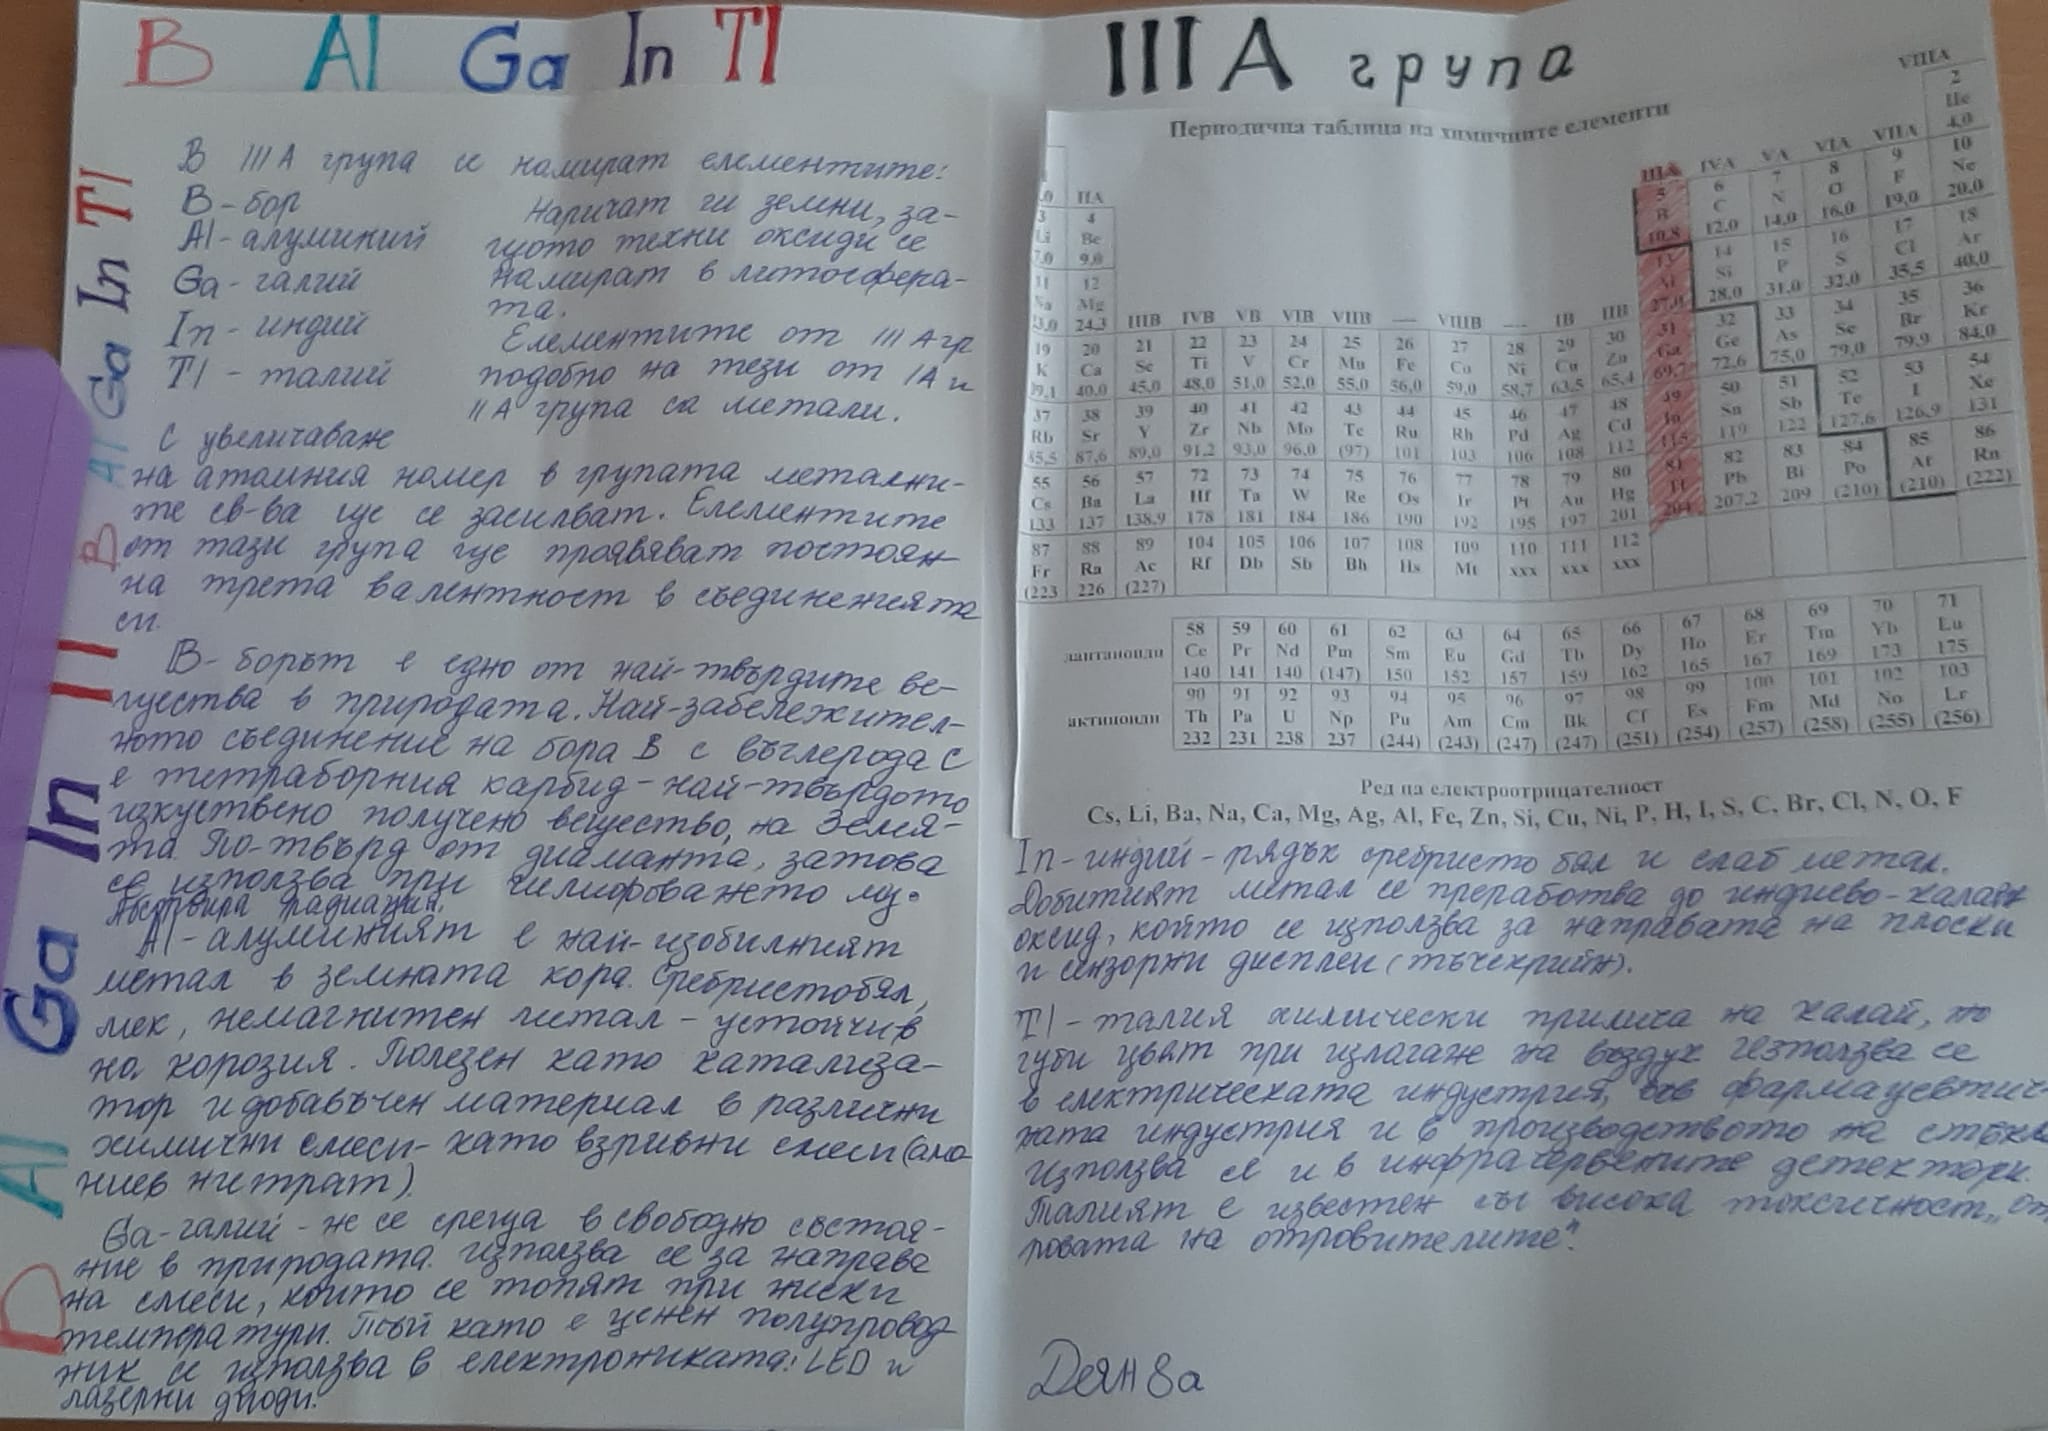 B Al Ga In Tl
IIIA група
B Al Ga In Tl
B Al Ga In Tl
В IIIA група се намират елементите:
B - бор
Al - алуминий
Ga - галий
In - индий
Tl - талий
Наричат ги земни, за-
щото техни оксиди се
намират в литосфера-
та.
Елементите от IIIA гр
подобно на тези от IA и
IIA група са метали.
С увеличаване
на атомния номер в групата метални-
те св-ва ще се засилват. Елементите
от тази група ще проявяват постоян
на трета валентност в съединенията
си.
B - борът е едно от най-твърдите ве-
щества в природата. Най-забележител-
ното съединение на бора B с въглерода C
е тетраборния карбид - най-твърдото
изкуствено получено вещество, на Земя-
та. По-твърд от диаманта, затова
се използва при шлифоването му.
радиация.
Al - алуминият е най-изобилният
метал в земната кора. Сребристобял,
мек, немагнитен метал - устойчив
на корозия. Полезен като катализа-
тор и добавъчен материал в различни
химични смеси - като взривни смеси (амо
ниев нитрат).
Ga - галий - не се среща в свободно състоя-
ние в природата. Използва се за направа
на смеси, които се топят при ниски
температури. Тъй като е ценен полупровод-
ник се използва в електрониката: LED и
лазерни диоди.
Периодична таблица на химичните елементи
VIIIA
IIA IIIA IVA VA VIA VIIA
2 He 4,0
3 Li 7,0 4 Be 9,0 5 B 10,8 6 C 12,0 7 N 14,0 8 O 16,0 9 F 19,0 10 Ne 20,0
11 Na 23,0 12 Mg 24,3 13 Al 27,0 14 Si 28,0 15 P 31,0 16 S 32,0 17 Cl 35,5 18 Ar 40,0
IIIB IVB VB VIB VIIB — VIIIB — IB IIB
19 K 39,1 20 Ca 40,0 21 Sc 45,0 22 Ti 48,0 23 V 51,0 24 Cr 52,0 25 Mn 55,0 26 Fe 56,0 27 Co 59,0 28 Ni 58,7 29 Cu 63,5 30 Zn 65,4 31 Ga 69,7 32 Ge 72,6 33 As 75,0 34 Se 79,0 35 Br 79,9 36 Kr 84,0
37 Rb 85,5 38 Sr 87,6 39 Y 89,0 40 Zr 91,2 41 Nb 93,0 42 Mo 96,0 43 Tc (97) 44 Ru 101 45 Rh 103 46 Pd 106 47 Ag 108 48 Cd 112 49 In 115 50 Sn 119 51 Sb 122 52 Te 127,6 53 I 126,9 54 Xe 131
55 Cs 133 56 Ba 137 57 La 138,9 72 Hf 178 73 Ta 181 74 W 184 75 Re 186 76 Os 190 77 Ir 192 78 Pt 195 79 Au 197 80 Hg 201 81 Tl 204 82 Pb 207,2 83 Bi 209 84 Po (210) 85 At (210) 86 Rn (222)
87 Fr (223 88 Ra 226 89 Ac (227) 104 Rf 105 Db 106 Sb 107 Bh 108 Hs 109 Mt 110 xxx 111 xxx 112 xxx
лантаноиди 58 Ce 140 59 Pr 141 60 Nd 140 61 Pm (147) 62 Sm 150 63 Eu 152 64 Gd 157 65 Tb 159 66 Dy 162 67 Ho 165 68 Er 167 69 Tm 169 70 Yb 173 71 Lu 175
актиноиди 90 Th 232 91 Pa 231 92 U 238 93 Np 237 94 Pu (244) 95 Am (243) 96 Cm (247) 97 Bk (247) 98 Cf (251) 99 Es (254) 100 Fm (257) 101 Md (258) 102 No (255) 103 Lr (256)
Ред на електроотрицателност
Cs, Li, Ba, Na, Ca, Mg, Ag, Al, Fe, Zn, Si, Cu, Ni, P, H, I, S, C, Br, Cl, N, O, F
In - индий - рядък сребристо бял и слаб метал.
Добитият метал се преработва до индиево-калаен
оксид, който се използва за направата на плоски
и сензорни дисплеи (тъчскрийн).
Tl - талия химически прилича на калай, но
губи цвят при излагане на въздух използва се
в електрическата индустрия, във фармацевтич-
ната индустрия и в производството на стъкло
използва се и в инфрачервените детектори.
Талият е известен със висока токсичност „от
ровата на отровителите".
Деян 8а